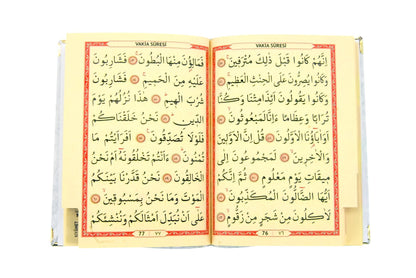 VAKİA SÛRESİ
اِنَّهُمْ كَانُوا قَبْلَ ذٰلِكَ مُتْرَفٖينَ
وَكَانُوا يُصِرُّونَ عَلَى الْحِنْثِ الْعَظٖيمِ
وَكَانُوا يَقُولُونَ اَئِذَا مِتْنَا وَكُنَّا
تُرَابًا وَعِظَامًا ءَاِنَّا لَمَبْعُوثُونَ
اَوَاٰبَٓاؤُنَا الْاَوَّلُونَ قُلْ اِنَّ الْاَوَّلٖينَ
وَالْاٰخِرٖينَ لَمَجْمُوعُونَ اِلٰى
مٖيقَاتِ يَوْمٍ مَعْلُومٍ ثُمَّ اِنَّكُمْ
اَيُّهَا الضَّٓالُّونَ الْمُكَذِّبُونَ
لَاٰكِلُونَ مِنْ شَجَرٍ مِنْ زَقُّومٍ
76 ٧٦
VAKİA SÛRESİ
فَمَالِؤُنَ مِنْهَا الْبُطُونَ فَشَارِبُونَ
عَلَيْهِ مِنَ الْحَمٖيمِ فَشَارِبُونَ
شُرْبَ الْهٖيمِ هٰذَا نُزُلُهُمْ يَوْمَ
الدّٖينِ نَحْنُ خَلَقْنَاكُمْ
فَلَوْلَا تُصَدِّقُونَ اَفَرَاَيْتُمْ مَا
تُمْنُونَ ءَاَنْتُمْ تَخْلُقُونَهُ اَمْ نَحْنُ
الْخَالِقُونَ نَحْنُ قَدَّرْنَا بَيْنَكُمُ
الْمَوْتَ وَمَا نَحْنُ بِمَسْبُوقٖينَ
عَلٰٓى اَنْ نُبَدِّلَ اَمْثَالَكُمْ وَنُنْشِئَكُمْ
77 ٧٧